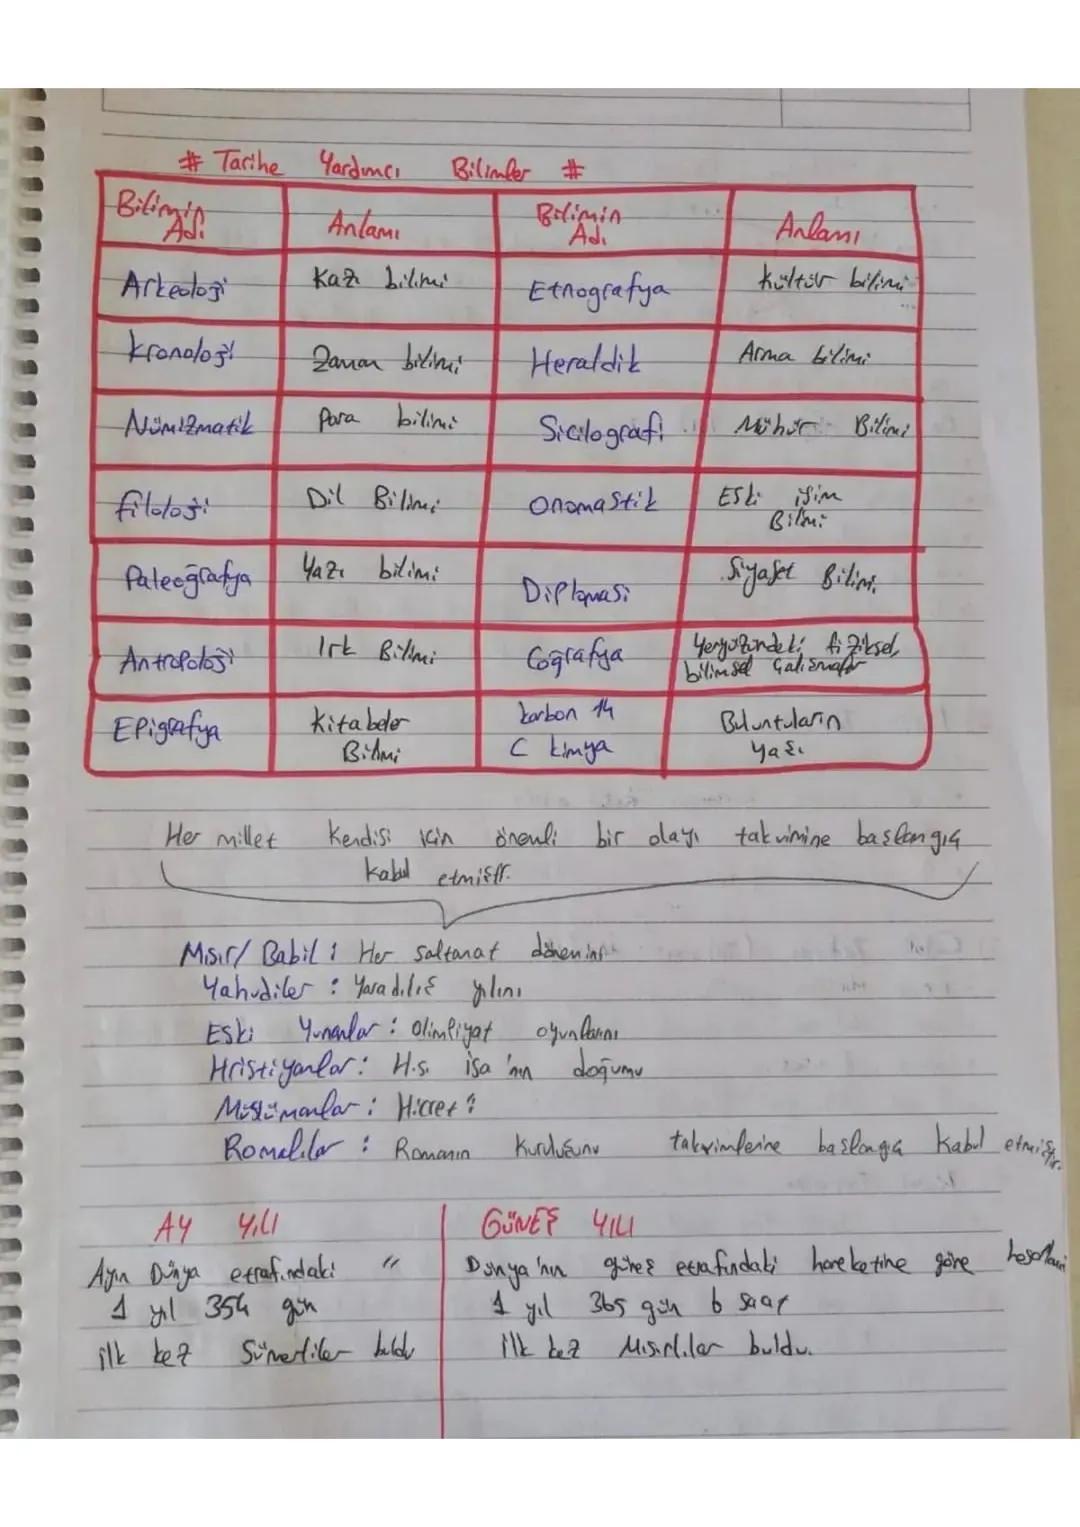 # Tarihe Yardımcı Bilimler #
Bilimin Adı Anlamı Bilimin Adı Anlamı
Arkeoloji Kazı bilimi Etnografya Kültür bilimi
Kronoloji Zaman bilimi Heraldik Arma bilimi
Nümizmatik Para bilimi Sicilografi Mühür Bilimi
Filoloji Dil Bilimi Onomastik Eski isim Bilimi
Paleoğrafya Yazı bilimi Diplomasi Siyaset Bilimi
Antropoloji Irk Bilimi Coğrafya Yeryüzündeki fiziksel, bilimsel Çalışmalar
Epigrafya Kitabeler Bilimi karbon 14 C kimya Buluntuların yaşı
Her millet kendisi için önemli bir olayı takvimine başlangıç
kabul etmiştir.
Mısır/ Babil : Her saltanat dönemini
Yahudiler : Yaradılış yılını
Eski Yunanlar : Olimpiyat oyunlarını
Hristiyanlar : Hs. isa'nın doğumu
Müslümanlar : Hicret
Romalılar : Romanın kuruluşunu takvimlerine başlangıç kabul etmiştir.
AY YILI
Ayın Dünya etrafındaki "
1 yıl 354 gün
ilk kez Sümerliler buldu
GÜNEŞ YILI
Dünya'nın güneş etrafındaki hareketine göre hesaplanır
1 yıl 365 gün 6 saat
ilk kez Mısırlılar buldu.